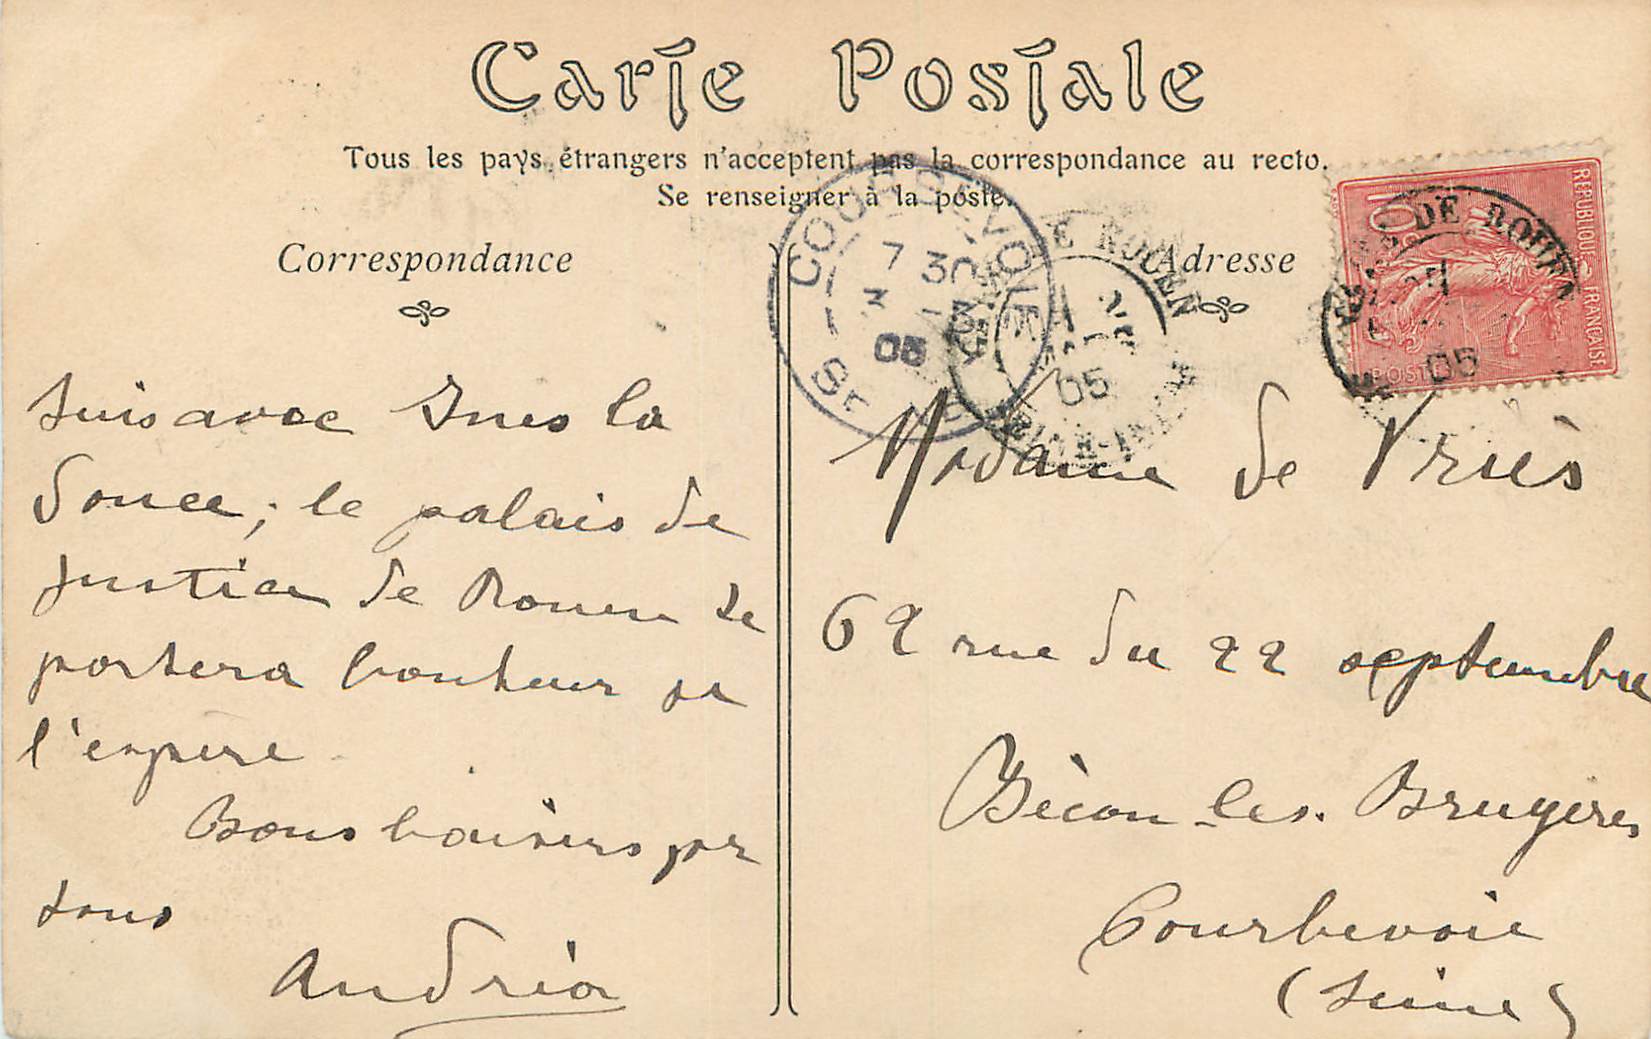 Carte Postale
Tous les pays étrangers n'acceptent pas la correspondance au recto.
Se renseigner à la poste.
Correspondance
suis avec Ines la
douce; le palais de
justice de Rouen te
portera bonheur je
l'espere
Bons baisers pr
tous
Andréa
Adresse
Madame de Vriès
62 rue du 22 septembre
Bécon-les-Bruyères
Courbevoie
(Seine)
COURBEVOIE
7 30
3
05
E ROUEN
05
DE ROUEN
05
10
REPUBLIQUE FRANÇAISE
POSTES